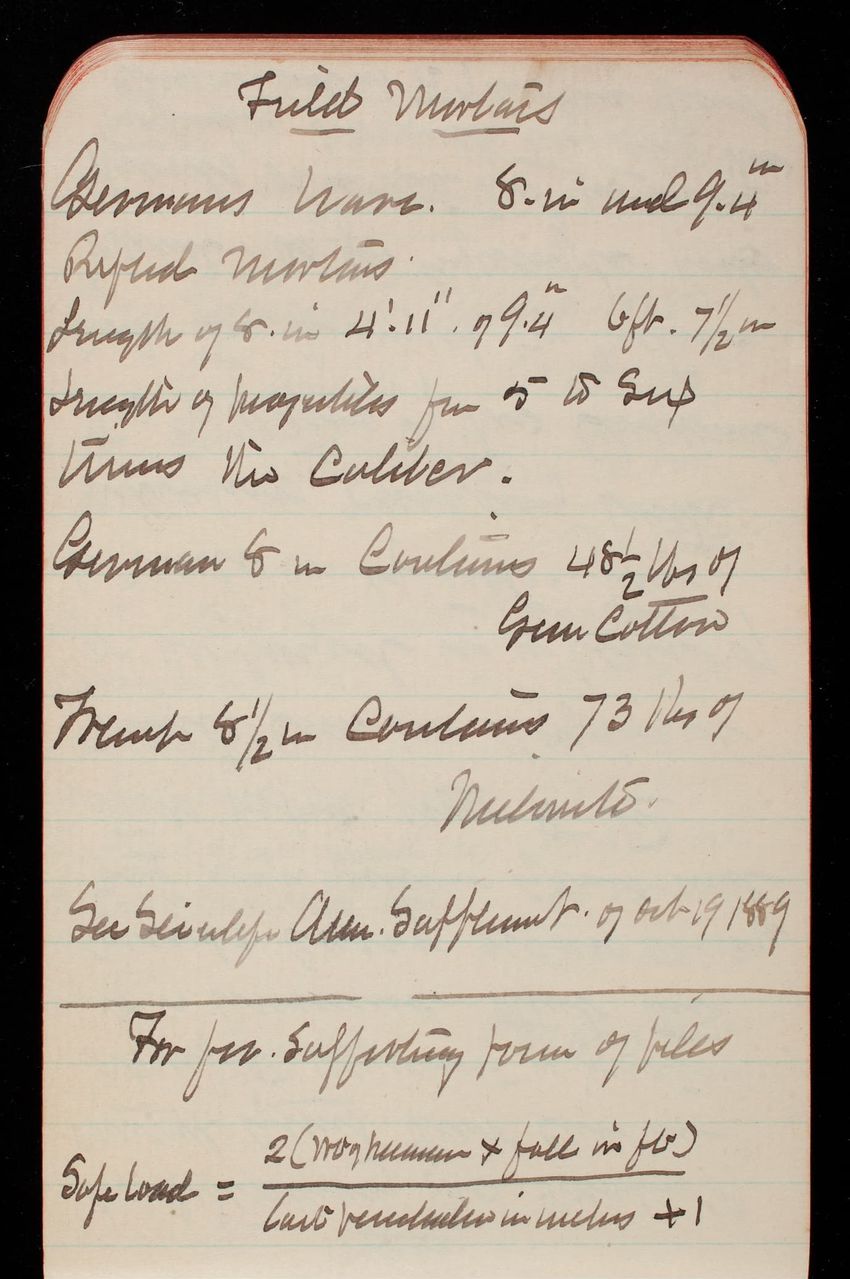 Field Mortars
Germans have. 8-in and 9.4 in
Rifled Mortars.
Length of 8.in 4'.11". of 9.4 in 6ft. 7 1/2 in
Length of projectiles from 5 to Six
times the Caliber.
German 8 in Contains 48 1/2 lbs of
Gun Cotton
French 8 1/2 in Contains 73 lbs of
Melinite.
See Scientific Am. Supplement. of Oct 19 1889
For for. Supporting power of piles
Safe load = 2 (W of hammer × fall in ft) / last penetration in inches + 1